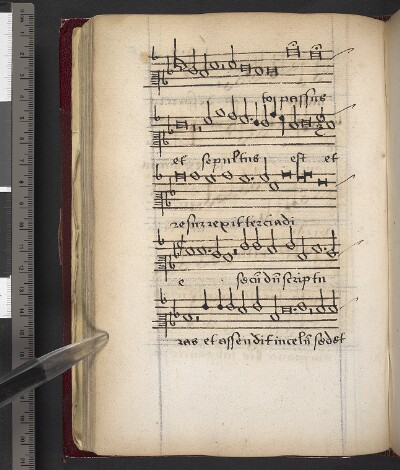 to: passus
et sepultus est et
resurrexit tercia di
e secūdū scriptu
ras et assendit in celū sedet